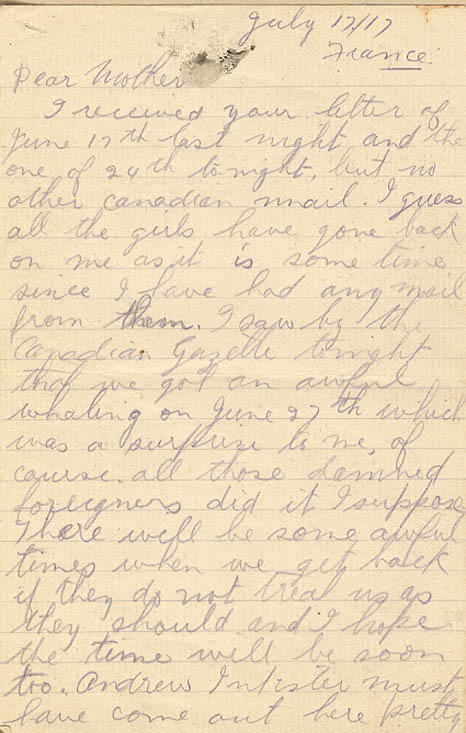 July 17/17
France.
Dear Mother
I received your letter of
June 17th last night and the
one of 24th tonight, but no
other Canadian mail. I guess
all the girls have gone back
on me as it is some time
since I have had any mail
from them. I saw by the
Canadian Gazette tonight
that we got an awful
whaling on June 27th which
was a surprize to me, of
course. all those damned
foreigners did it I suppose
There will be some awful
times when we get back
if they do not treat us as
they should and I hope
the time will be soon
too. Andrew Inkster must
have come out here pretty